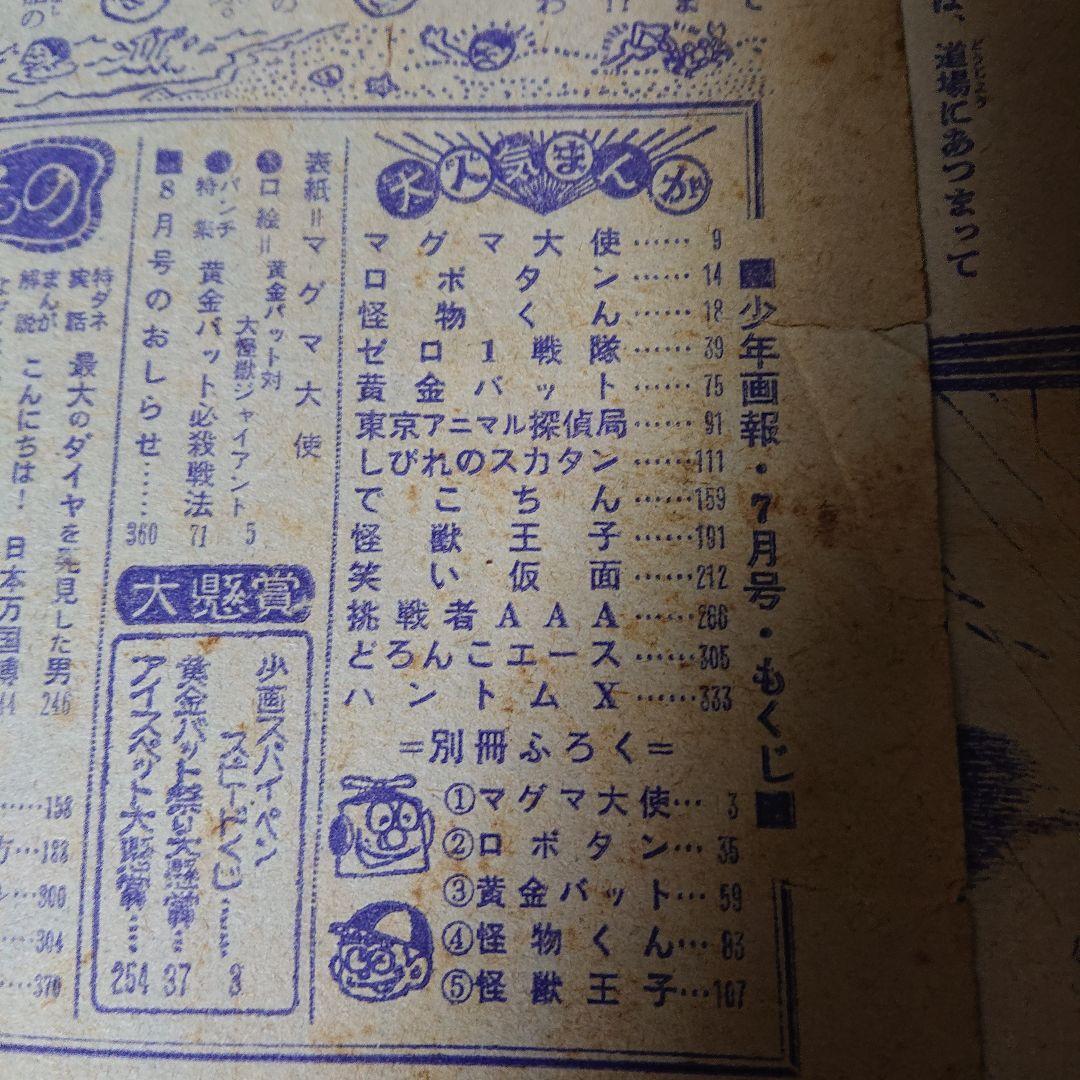 ■少年画報・7月号・もくじ■
大人気まんが
マグマ大使……9
ロボタン……14
怪物くん……18
ゼロ1戦隊……39
黄金バット……75
東京アニマル探偵局……91
しびれのスカタン……111
でこちん……159
怪獣王子……191
笑い仮面……212
挑戦者AAA……266
どろんこエース……305
ハントムX……333
=別冊ふろく=
①マグマ大使…3
②ロボタン…35
③黄金バット…59
④怪物くん…83
⑤怪獣王子…107
表紙=マグマ大使
口絵=黄金バット対
大怪獣ジャイアント
5
パンチ特集
黄金バット必殺戦法
71
8月号のおしらせ……
360
大懸賞
少画スパイペン
スピードくじ……
3
黄金バット祭り大懸賞…
37
アイスペット大懸賞……
254
もの
特ダネ実話
最大のダイヤを発見した男
246
まんが解説
こんにちは!日本万国博
……158
…188
…300
…304
…370
道場にあつまって